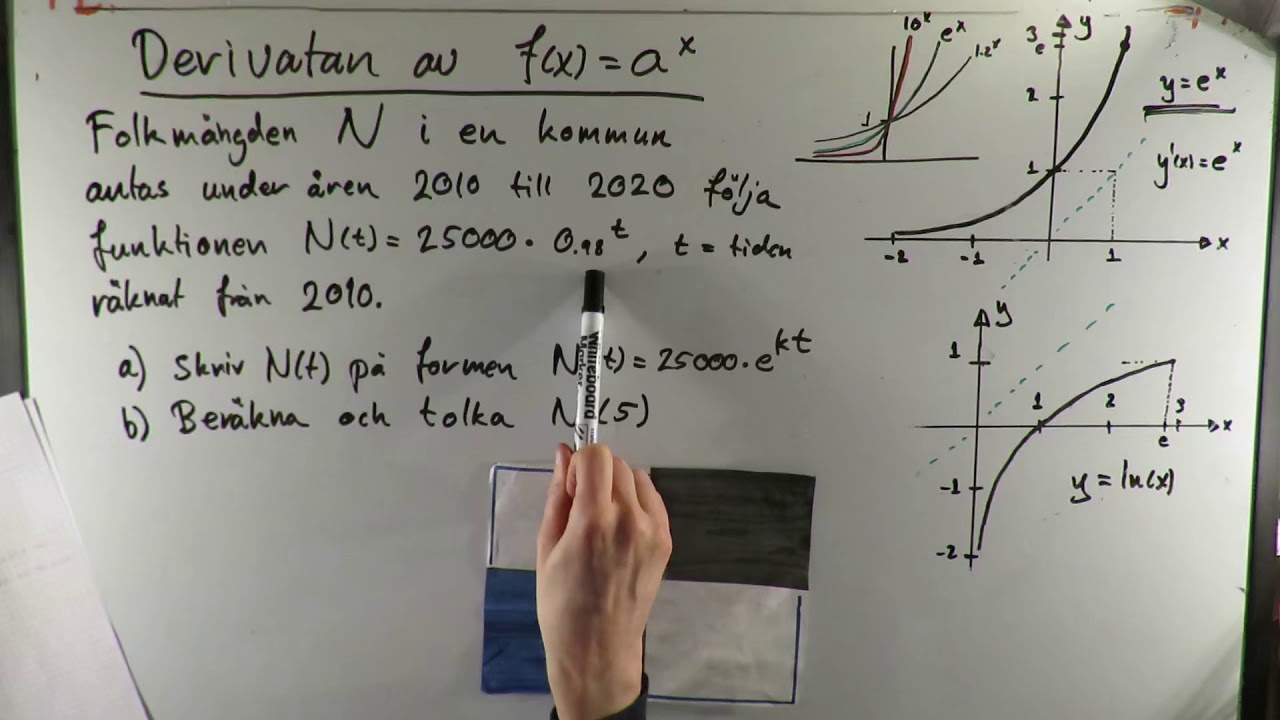 Derivatan av f(x) = a^x
Folkmängden N i en kommun
antas under åren 2010 till 2020 följa
funktionen N(t) = 25000 · 0.98^t, t = tiden
räknat från 2010.
a) Skriv N(t) på formen N(t) = 25000 · e^kt
b) Beräkna och tolka N'(5)
Whiteboard
Marker
10^x e^x 1.2^x
1
y
3
e
2
1
-2 -1 1 x
y = e^x
y'(x) = e^x
y
1
1 2 3 x
e
-1
-2
y = ln(x)